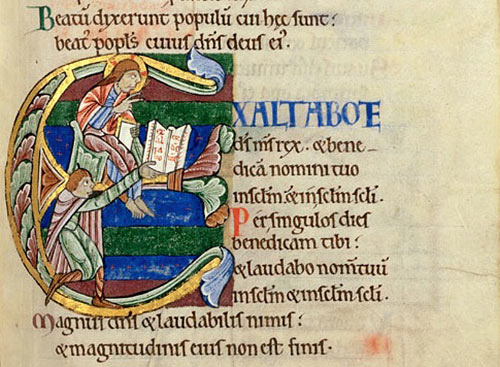 Beatū dixerunt populū cui hęc sunt:
beat' popl's cuius dn̄s deus ei'.
EXALTABO TE
ds̄ ms̄ rex. & bene-
dicā nomini tuo
in sc̄lm & in sc̄lm sc̄li.
Per singulos dies
benedicam tibi:
& laudabo nom̄ tuū
in sc̄lm & in sc̄lm sc̄li.
Magnus dn̄s & laudabilis nimis:
& magnitudinis eius non est finis.